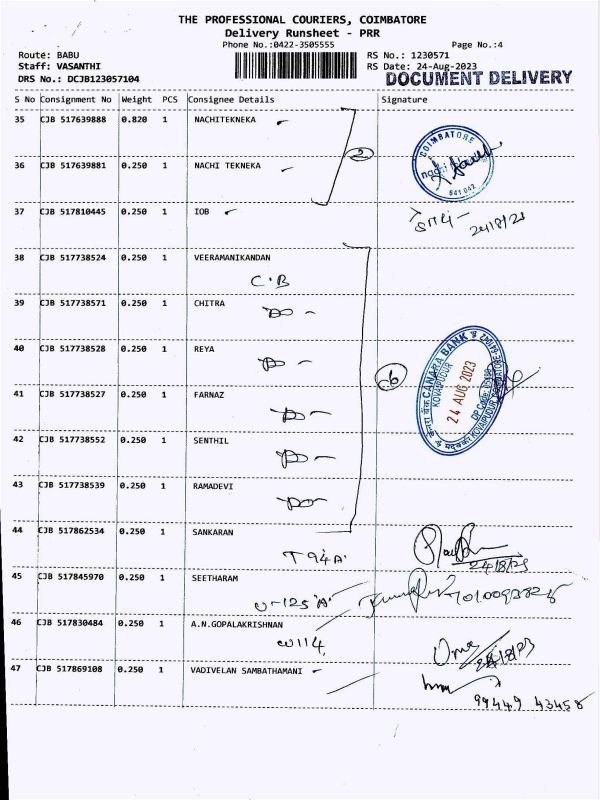 THE PROFESSIONAL COURIERS, COIMBATORE
Delivery Runsheet - PRR
Phone No.:0422-3505555 Page No.:4
Route: BABU RS No.: 1230571
Staff: VASANTHI RS Date: 24-Aug-2023
DRS No.: DCJB123057104 DOCUMENT DELIVERY
S No Consignment No Weight PCS Consignee Details Signature
35 CJB 517639888 0.820 1 NACHITEKNEKA
2
COIMBATORE
36 CJB 517639881 0.250 1 NACHI TEKNEKA
641 042
37 CJB 517810445 0.250 1 IOB
24/8/23
38 CJB 517738524 0.250 1 VEERAMANIKANDAN
C.B
39 CJB 517738571 0.250 1 CHITRA
40 CJB 517738528 0.250 1 REYA
6
CANARA BANK
KOVAIPUDUR
24 AUG 2023
41 CJB 517738527 0.250 1 FARNAZ
42 CJB 517738552 0.250 1 SENTHIL
43 CJB 517738539 0.250 1 RAMADEVI
44 CJB 517862534 0.250 1 SANKARAN
T 94 A
24/8/23
45 CJB 517845970 0.250 1 SEETHARAM
U-125 'A'
46 CJB 517830484 0.250 1 A.N.GOPALAKRISHNAN
W114,
24/8/23
47 CJB 517869108 0.250 1 VADIVELAN SAMBATHAMANI
99449 43458